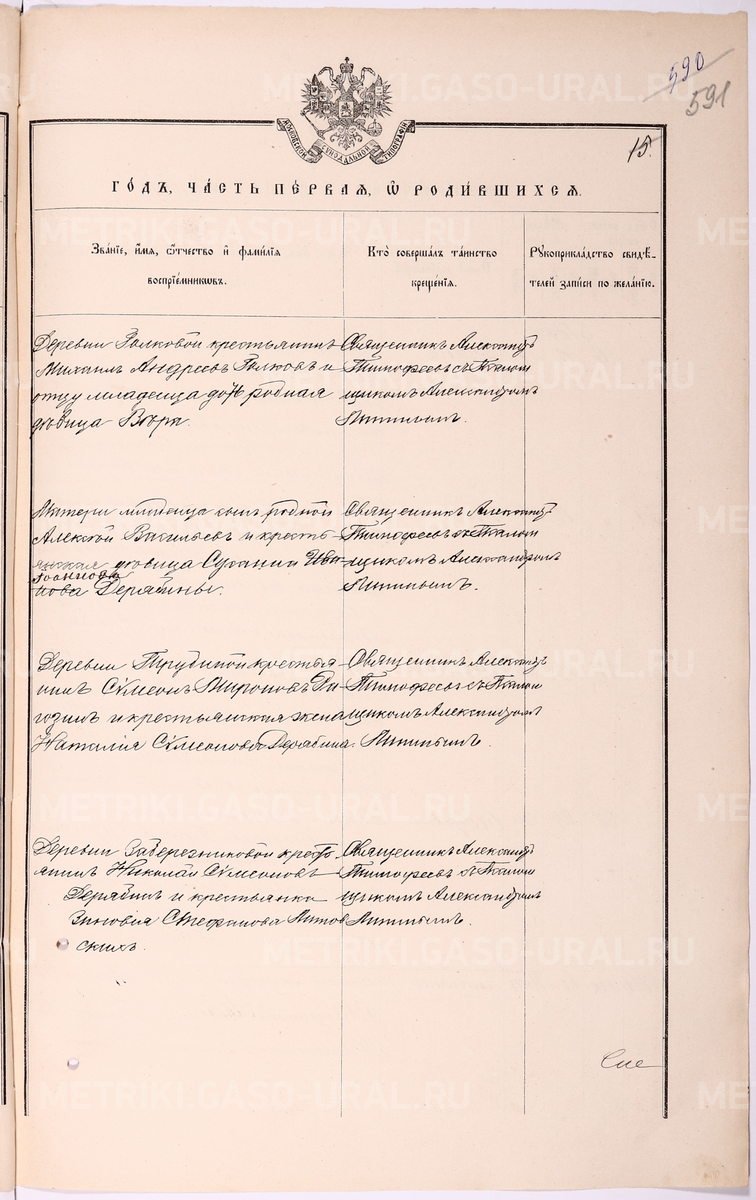 590
591
15.
МОСКОВСКОЙ СѴНОДАЛЬНОЙ ТИПОГРАФІИ
ГО́ДЪ, ЧА́СТЬ ПЕ́РВАЯ, Ѡ РОДИ́ВШИХСЯ.
Зва́нїе, и́мя, ѻ҆́тчество и҆ фами́лїя
воспрїе́мниковъ.
Кто̀ соверша́лъ та́инство
креще́нїя.
Рꙋкоприкла́дство свидѣ́-
телей за́писи по жела́нїю.
Деревни Волковой крестьянинъ
Михаилъ Андреевъ Волковъ и
отцу младенца дочь родная
дѣвица Вѣра.
Священникъ Александръ
Тимофеевъ съ Псалом
щикомъ Александромъ
Матери младенца сынъ родной
Алексѣй Васильевъ и кресть-
янская дѣвица Сусанна Ива-
Іоаннова
нова Дерябины.
Священникъ Александръ
Тимофеевъ съ Псалом
щикомъ Александромъ
Деревни Трубиной крестья-
нинъ Сѵмеонъ Мироновъ
и крестьянская жена
Наталія Сѵмеонова Дерябина.
Священникъ Александръ
Тимофеевъ съ Псалом
щикомъ Александромъ
Деревни Заберезниковой крест-
янинъ Николай Сѵмеоновъ
Дерябинъ и крестьянка
Зиновія Стефанова
скихъ.
Священникъ Александръ
Тимофеевъ съ Псалом
щикомъ Александромъ
METRIKI.GASO-URAL.RU